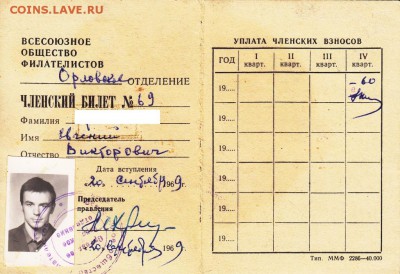 COINS.LAVE.RU
ВСЕСОЮЗНОЕ
ОБЩЕСТВО
ФИЛАТЕЛИСТОВ
Орловское ОТДЕЛЕНИЕ
ЧЛЕНСКИЙ БИЛЕТ № 69
Фамилия
Имя Евгений
Отчество Викторович
Дата вступления
20 сентября 1969 г.
Председатель
правления
20 сентября 1969 г.
УПЛАТА ЧЛЕНСКИХ ВЗНОСОВ
ГОД I кварт. II кварт. III кварт. IV кварт.
19..... -60
19.....
19.....
19.....
19.....
19.....
Тип. ММФ 2286—40.000